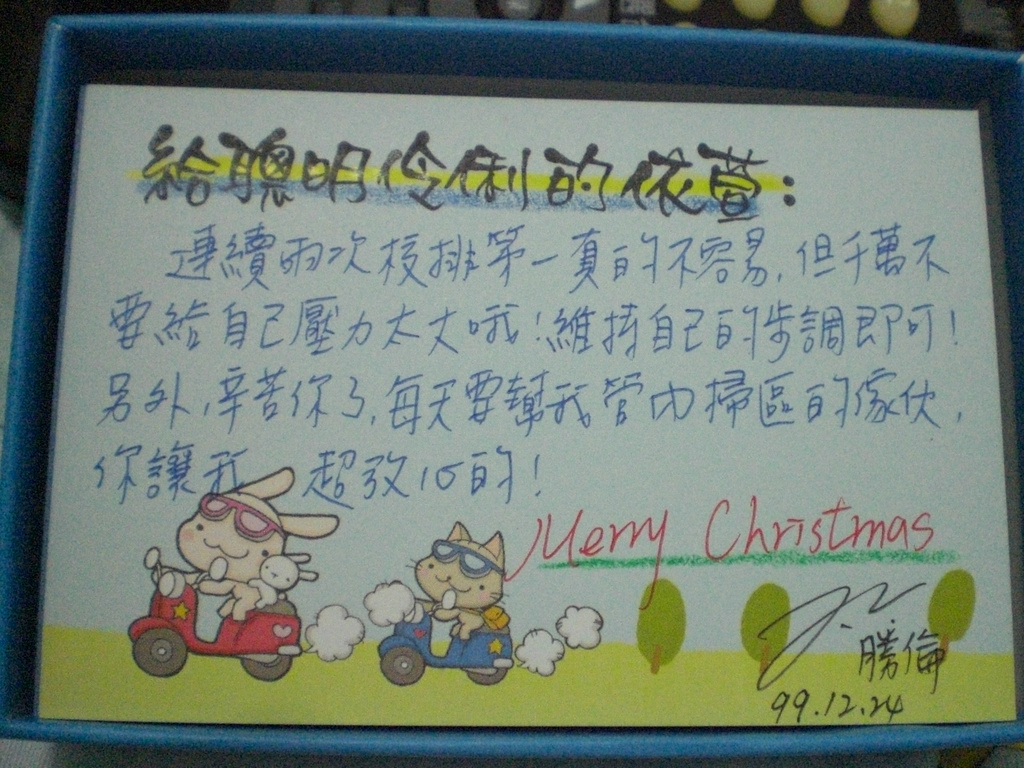 給聰明伶俐的依萱：
連續兩次校排第一真的不容易，但千萬不
要給自己壓力太大哦！維持自己的步調即可！
另外，辛苦你了，每天要幫我管內掃區的傢伙，
你讓我 超放心的！
Merry Christmas
勝倫
99.12.24